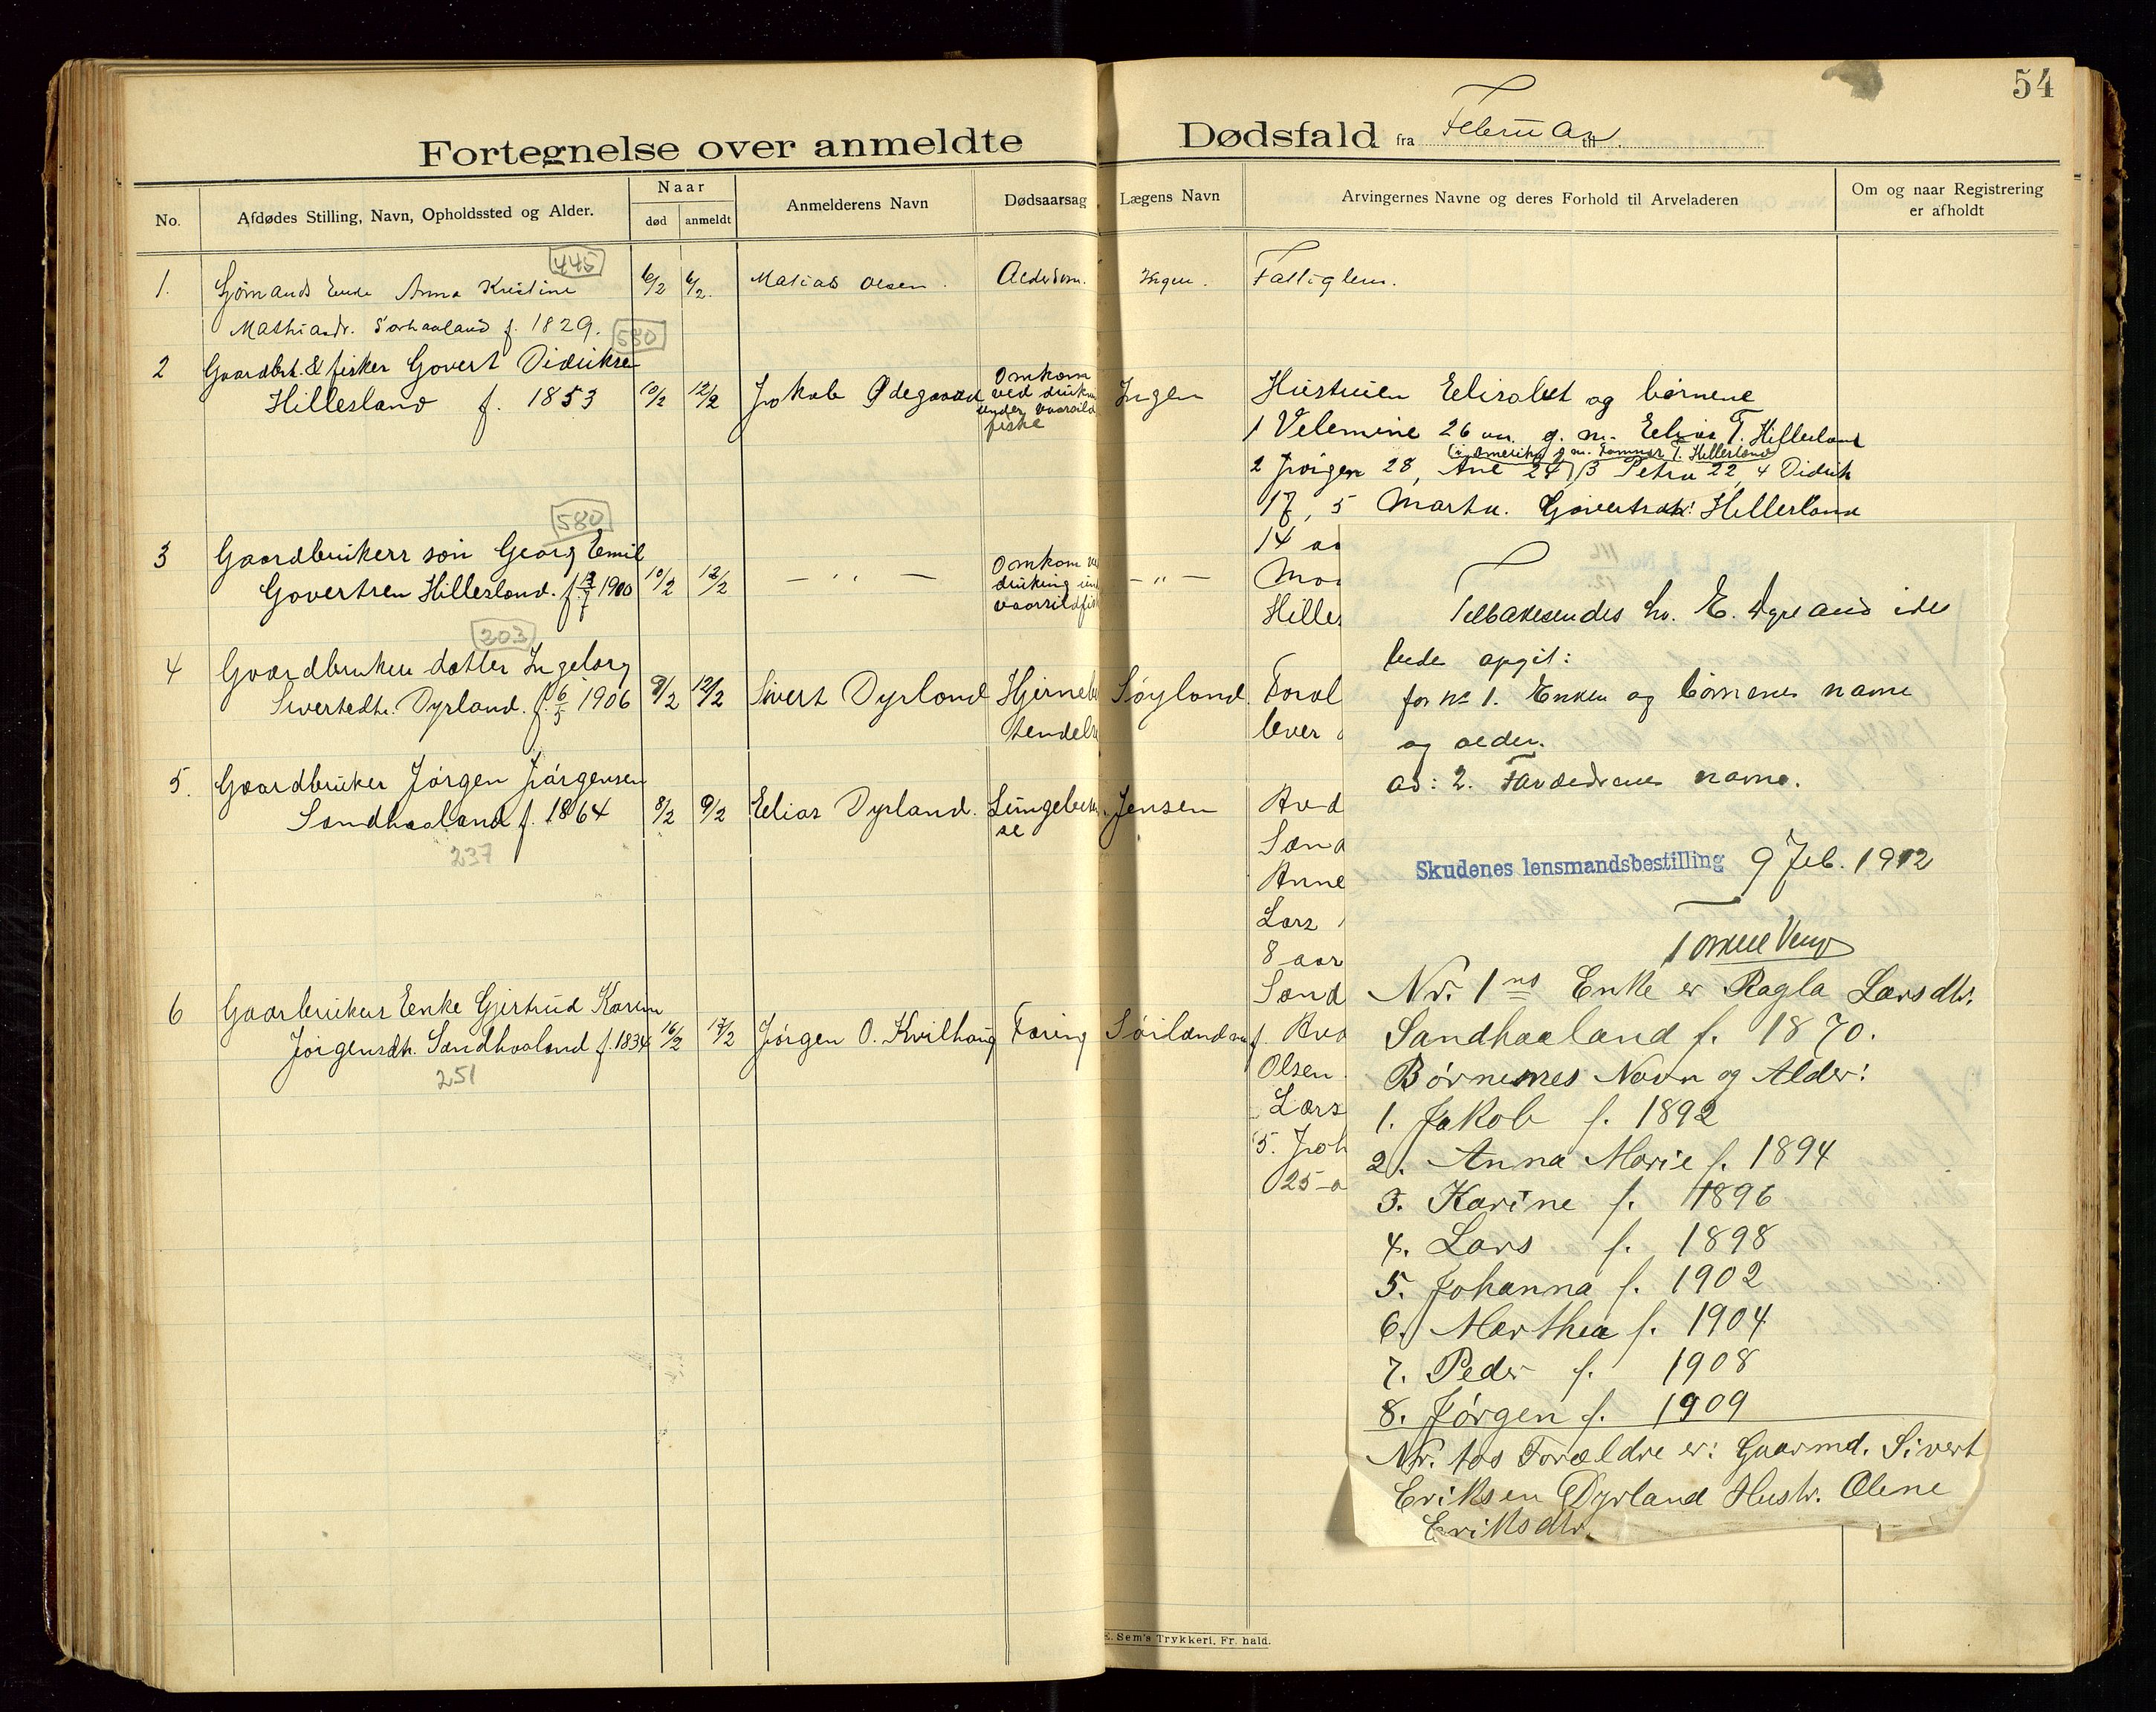 54
Fortegnelse over anmeldte Dødsfald fra Februar til
No.
Afdødes Stilling, Navn, Opholdssted og Alder.
Naar
død
anmeldt
Anmelderens Navn
Dødsaarsag
Lægens Navn
Arvingernes Navne og deres Forhold til Arveladeren
Om og naar Registrering
er afholdt
445
1. Sjømands Enke Anna Kristine 6/2 6/2. Matias Olsen. Alderdom. Ingen. Fattiglem.
Mathiasdr. Sørhaaland f. 1829.
580
2 Gaardbr. & fisker Govert Didriksen
Hillesland f. 1853 10/2 12/2 Jakob Ødegaard
Omkom
ved drukni
under vaarsild
fiske
Ingen
Hustruen Elisabet og børnene
1 Velemine 26 aar g. m. Elias T. Hillesland
(i Amerika g m. Tommas T. Hillesland
2 Jørgen 28, Ane 24) 3 Petra 22, 4 Didrik
17, 5 Marta Govertsdtr. Hillesland
14 aa
Mo
Hilles
580
3 Gaardbrukers søn Georg Emil
Govertsen Hillesland. f. 1900 10/2 12/2 — „ —
Omkom ve
drukning un
vaarsildfis
— „ —
203
4 Gaardbrukers datter Ingeborg
Sivertsdtr. Dyrland. f. 6/5 1906 9/2 12/2 Sivert Dyrland Hjernebe
tendelse
Søyland
Foræl
lever
5. Gaardbruker Jørgen Jørgensen
Sandhaaland f. 1864 8/2 9/2 Elias Dyrland. Lungebete
se
Jensen
237
Sand
Anne
Lars
8 aar
Sand
6 Gaarbrukers Enke Gjertrud Karin
Jørgensdtr. Sandhaaland f. 1834 16/2 17/2 Jørgen O. Kvilhaug Tæring
251
Olsen
Lars
5. Joh
25 a
Tilbakesendes hr. E. Dyrland idet
bedes opgit:
for no 1. Enken og børnenes navne
og alder.
ad: 2. Forældrenes navne.
Skudenes lensmandsbestilling 9 Feb. 1912
Nr. 1ns Enke er Ragla Larsdtr.
Sandhaaland f. 1870.
Børnenes Navn og Alder:
1. Jakob f. 1892
2. Anna Marie f. 1894
3. Karine f. 1896
4. Lars f. 1898
5. Johanna f. 1902
6. Marthea f. 1904
7. Peder f. 1908
8. Jørgen f. 1909
Nr. tos Forældre er: Gaarmd. Sivert
Eriksen Dyrland Hustr. Olene
Eriksdtr.
E. Sem's Trykkeri, Fr. hald.